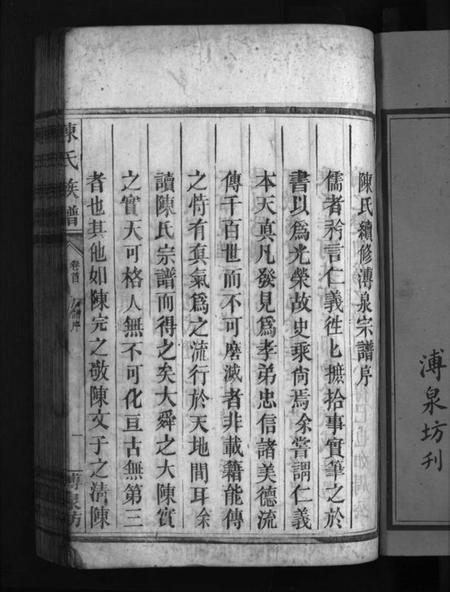 溥泉坊刊
陳氏續修溥泉宗譜序
儒者矜言仁義徃匕摭拾事實筆之於
書以爲光榮故史乘尙焉余嘗謂仁義
本天真凡發見爲孝弟忠信諸美德流
傳千百世而不可磨滅者非載籍能傳
之恃有真氣爲之流行於天地間耳余
讀陳氏宗譜而得之矣大舜之大陳實
之實天可格人無不可化亘古無第三
者也其他如陳完之敬陳文子之淸陳
陳氏族譜
卷首
譜序
一
溥泉坊